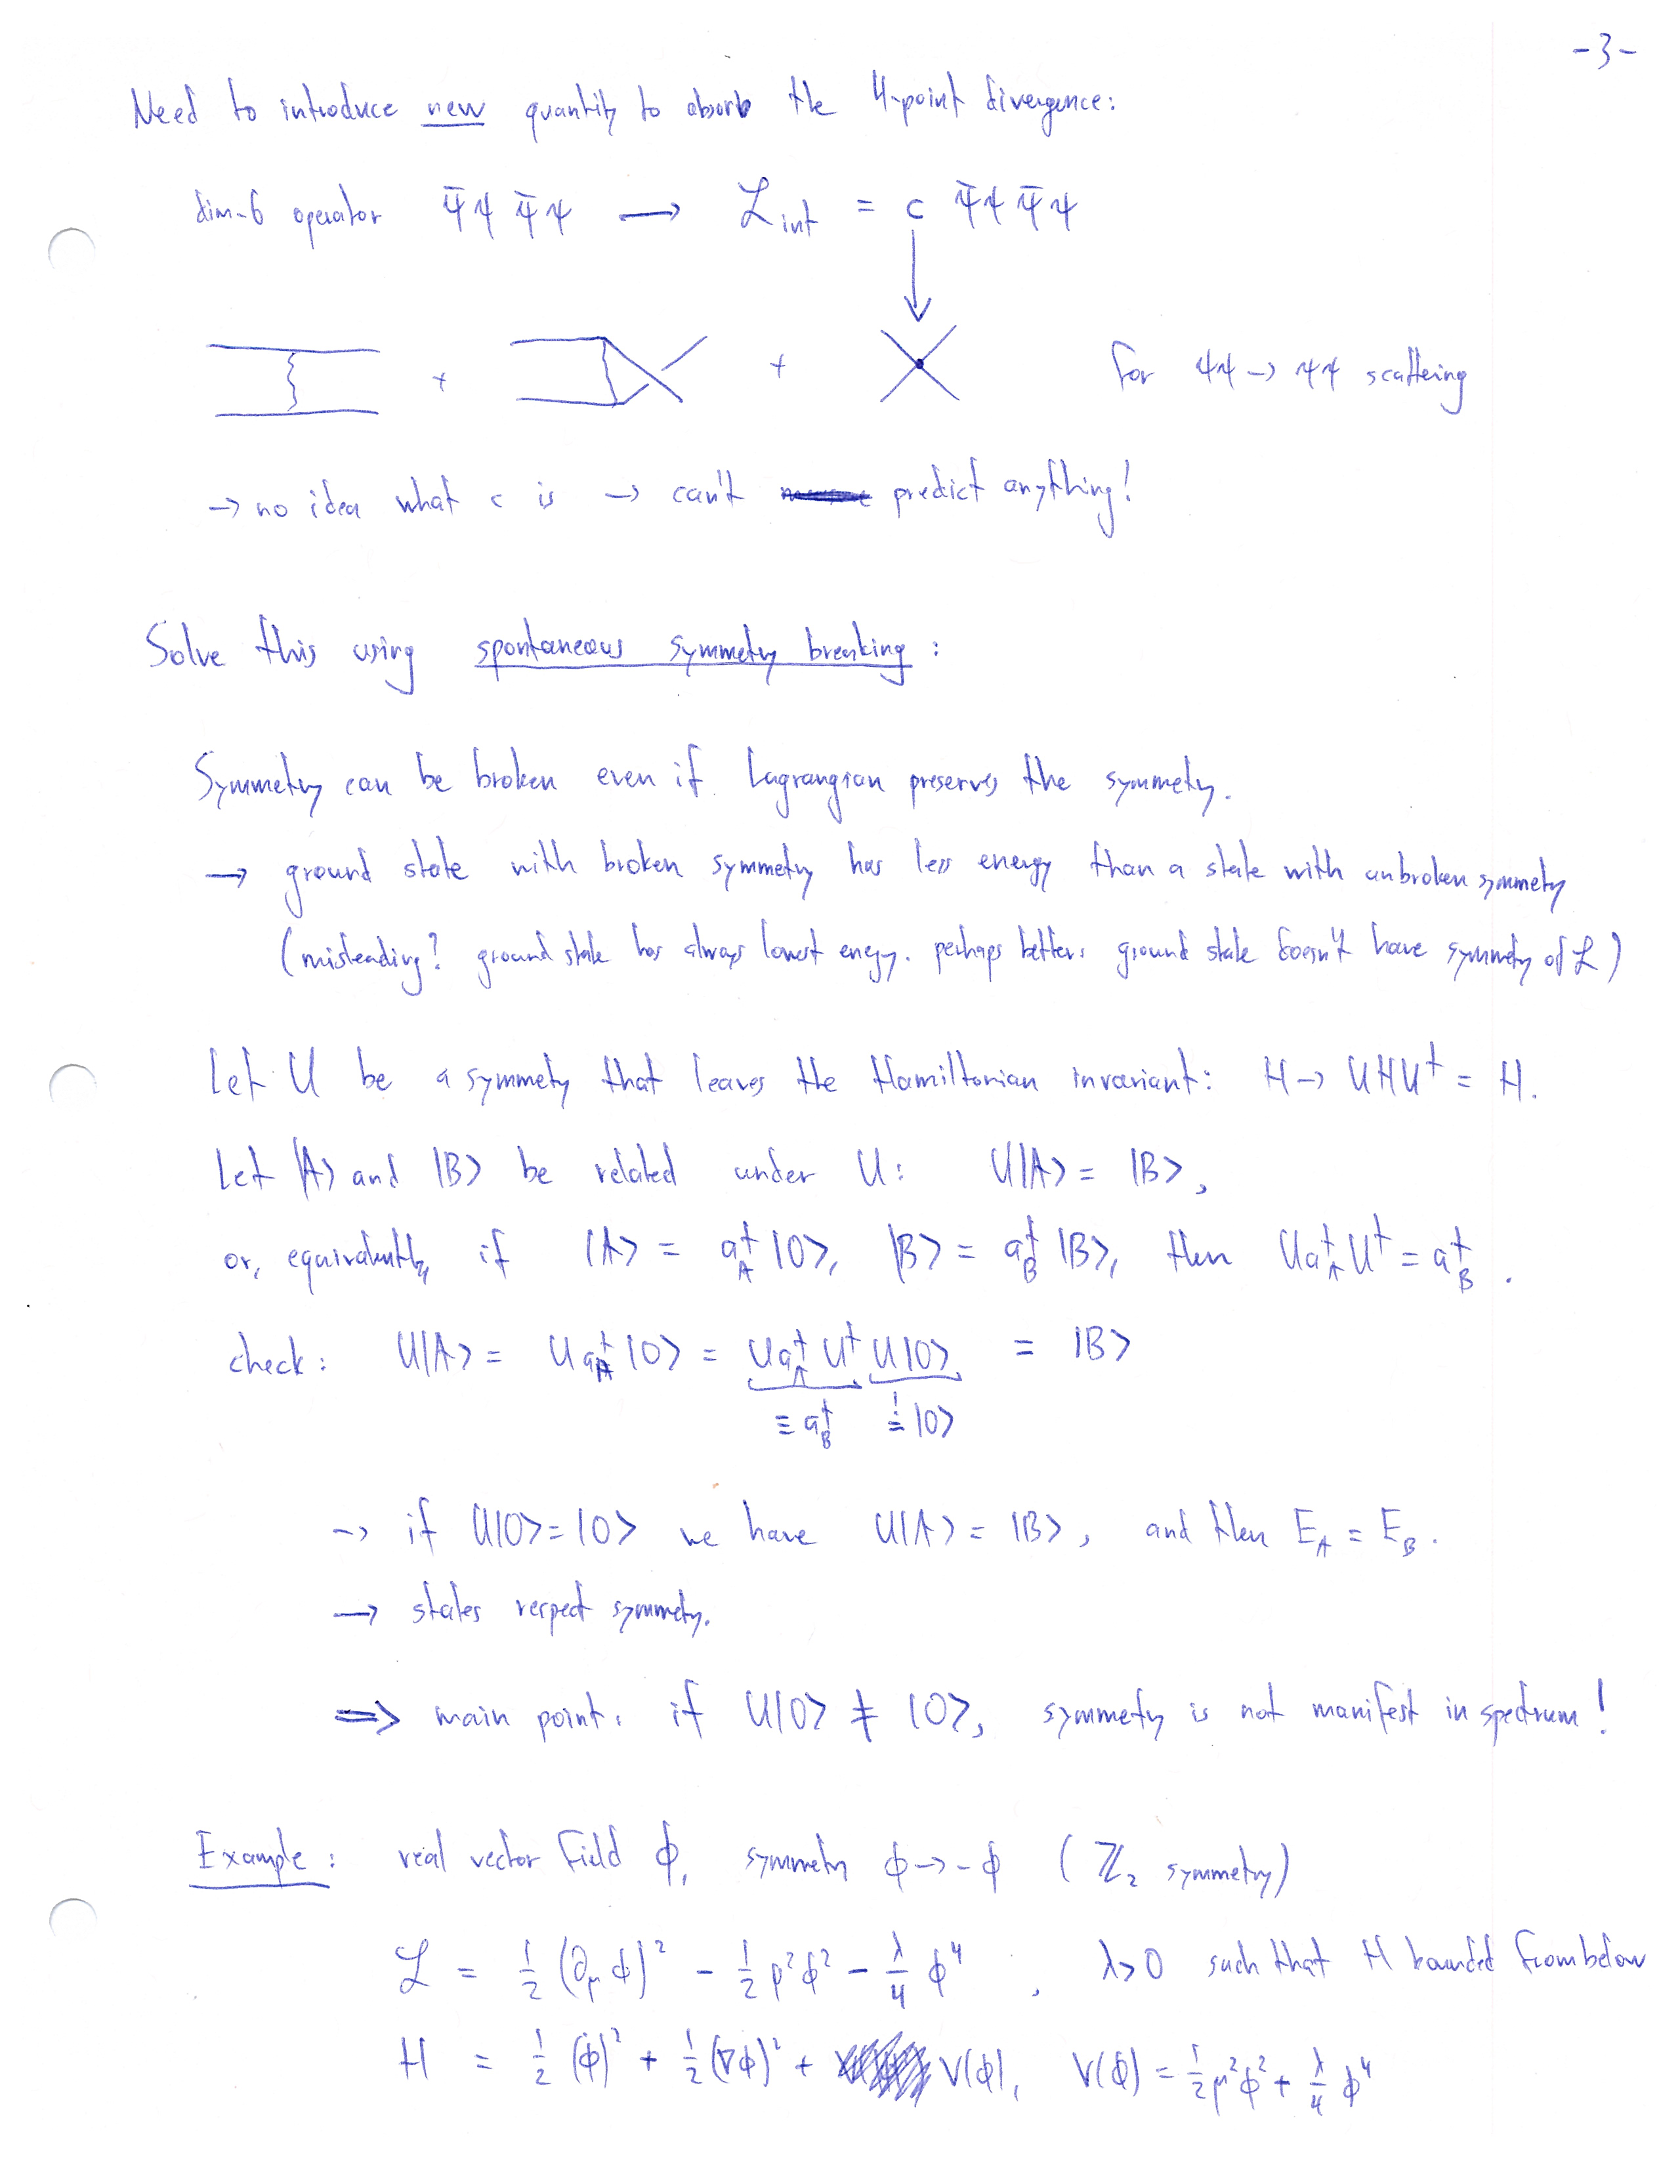 -3-
Need to introduce new quantity to absorb the 4-point divergence:
dim-6 operator ψ̄ψ ψ̄ψ → ℒ_int = c ψ̄ψ ψ̄ψ
+ + for ψψ → ψψ scattering
→ no idea what c is → can't predict anything!
Solve this using spontaneous symmetry breaking :
Symmetry can be broken even if Lagrangian preserves the symmetry.
→ ground state with broken symmetry has less energy than a state with unbroken symmetry
(misleading? ground state has always lowest energy. perhaps better: ground state doesn't have symmetry of ℒ)
Let U be a symmetry that leaves the Hamiltonian invariant: H → UHU† = H.
Let |A⟩ and |B⟩ be related under U: U|A⟩ = |B⟩,
or, equivalently, if |A⟩ = a†_A |0⟩, |B⟩ = a†_B |B⟩, then U a†_A U† = a†_B .
check: U|A⟩ = U a†_A |0⟩ = U a†_A U† U|0⟩ = |B⟩
≡ a†_B ≟ |0⟩
→ if U|0⟩ = |0⟩ we have U|A⟩ = |B⟩, and then E_A = E_B .
→ states respect symmetry.
⇒ main point: if U|0⟩ ≠ |0⟩, symmetry is not manifest in spectrum!
Example: real vector field ϕ, symmetry ϕ → -ϕ (ℤ₂ symmetry)
ℒ = ½ (∂_μ ϕ)² - ½ μ²ϕ² - λ/4 ϕ⁴ , λ>0 such that H bounded from below
H = ½ (ϕ̇)² + ½ (∇ϕ)² + V(ϕ), V(ϕ) = ½ μ²ϕ² + λ/4 ϕ⁴